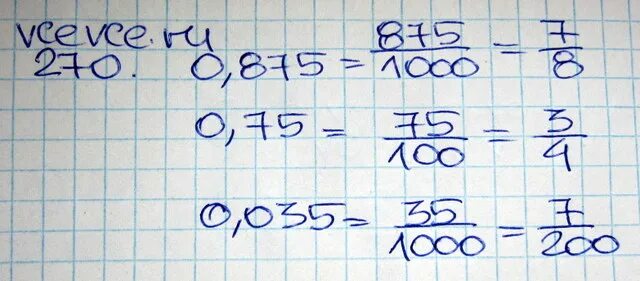 vcevce.ru
270. 0,875 = 875/1000 = 7/8
0,75 = 75/100 = 3/4
0,035 = 35/1000 = 7/200